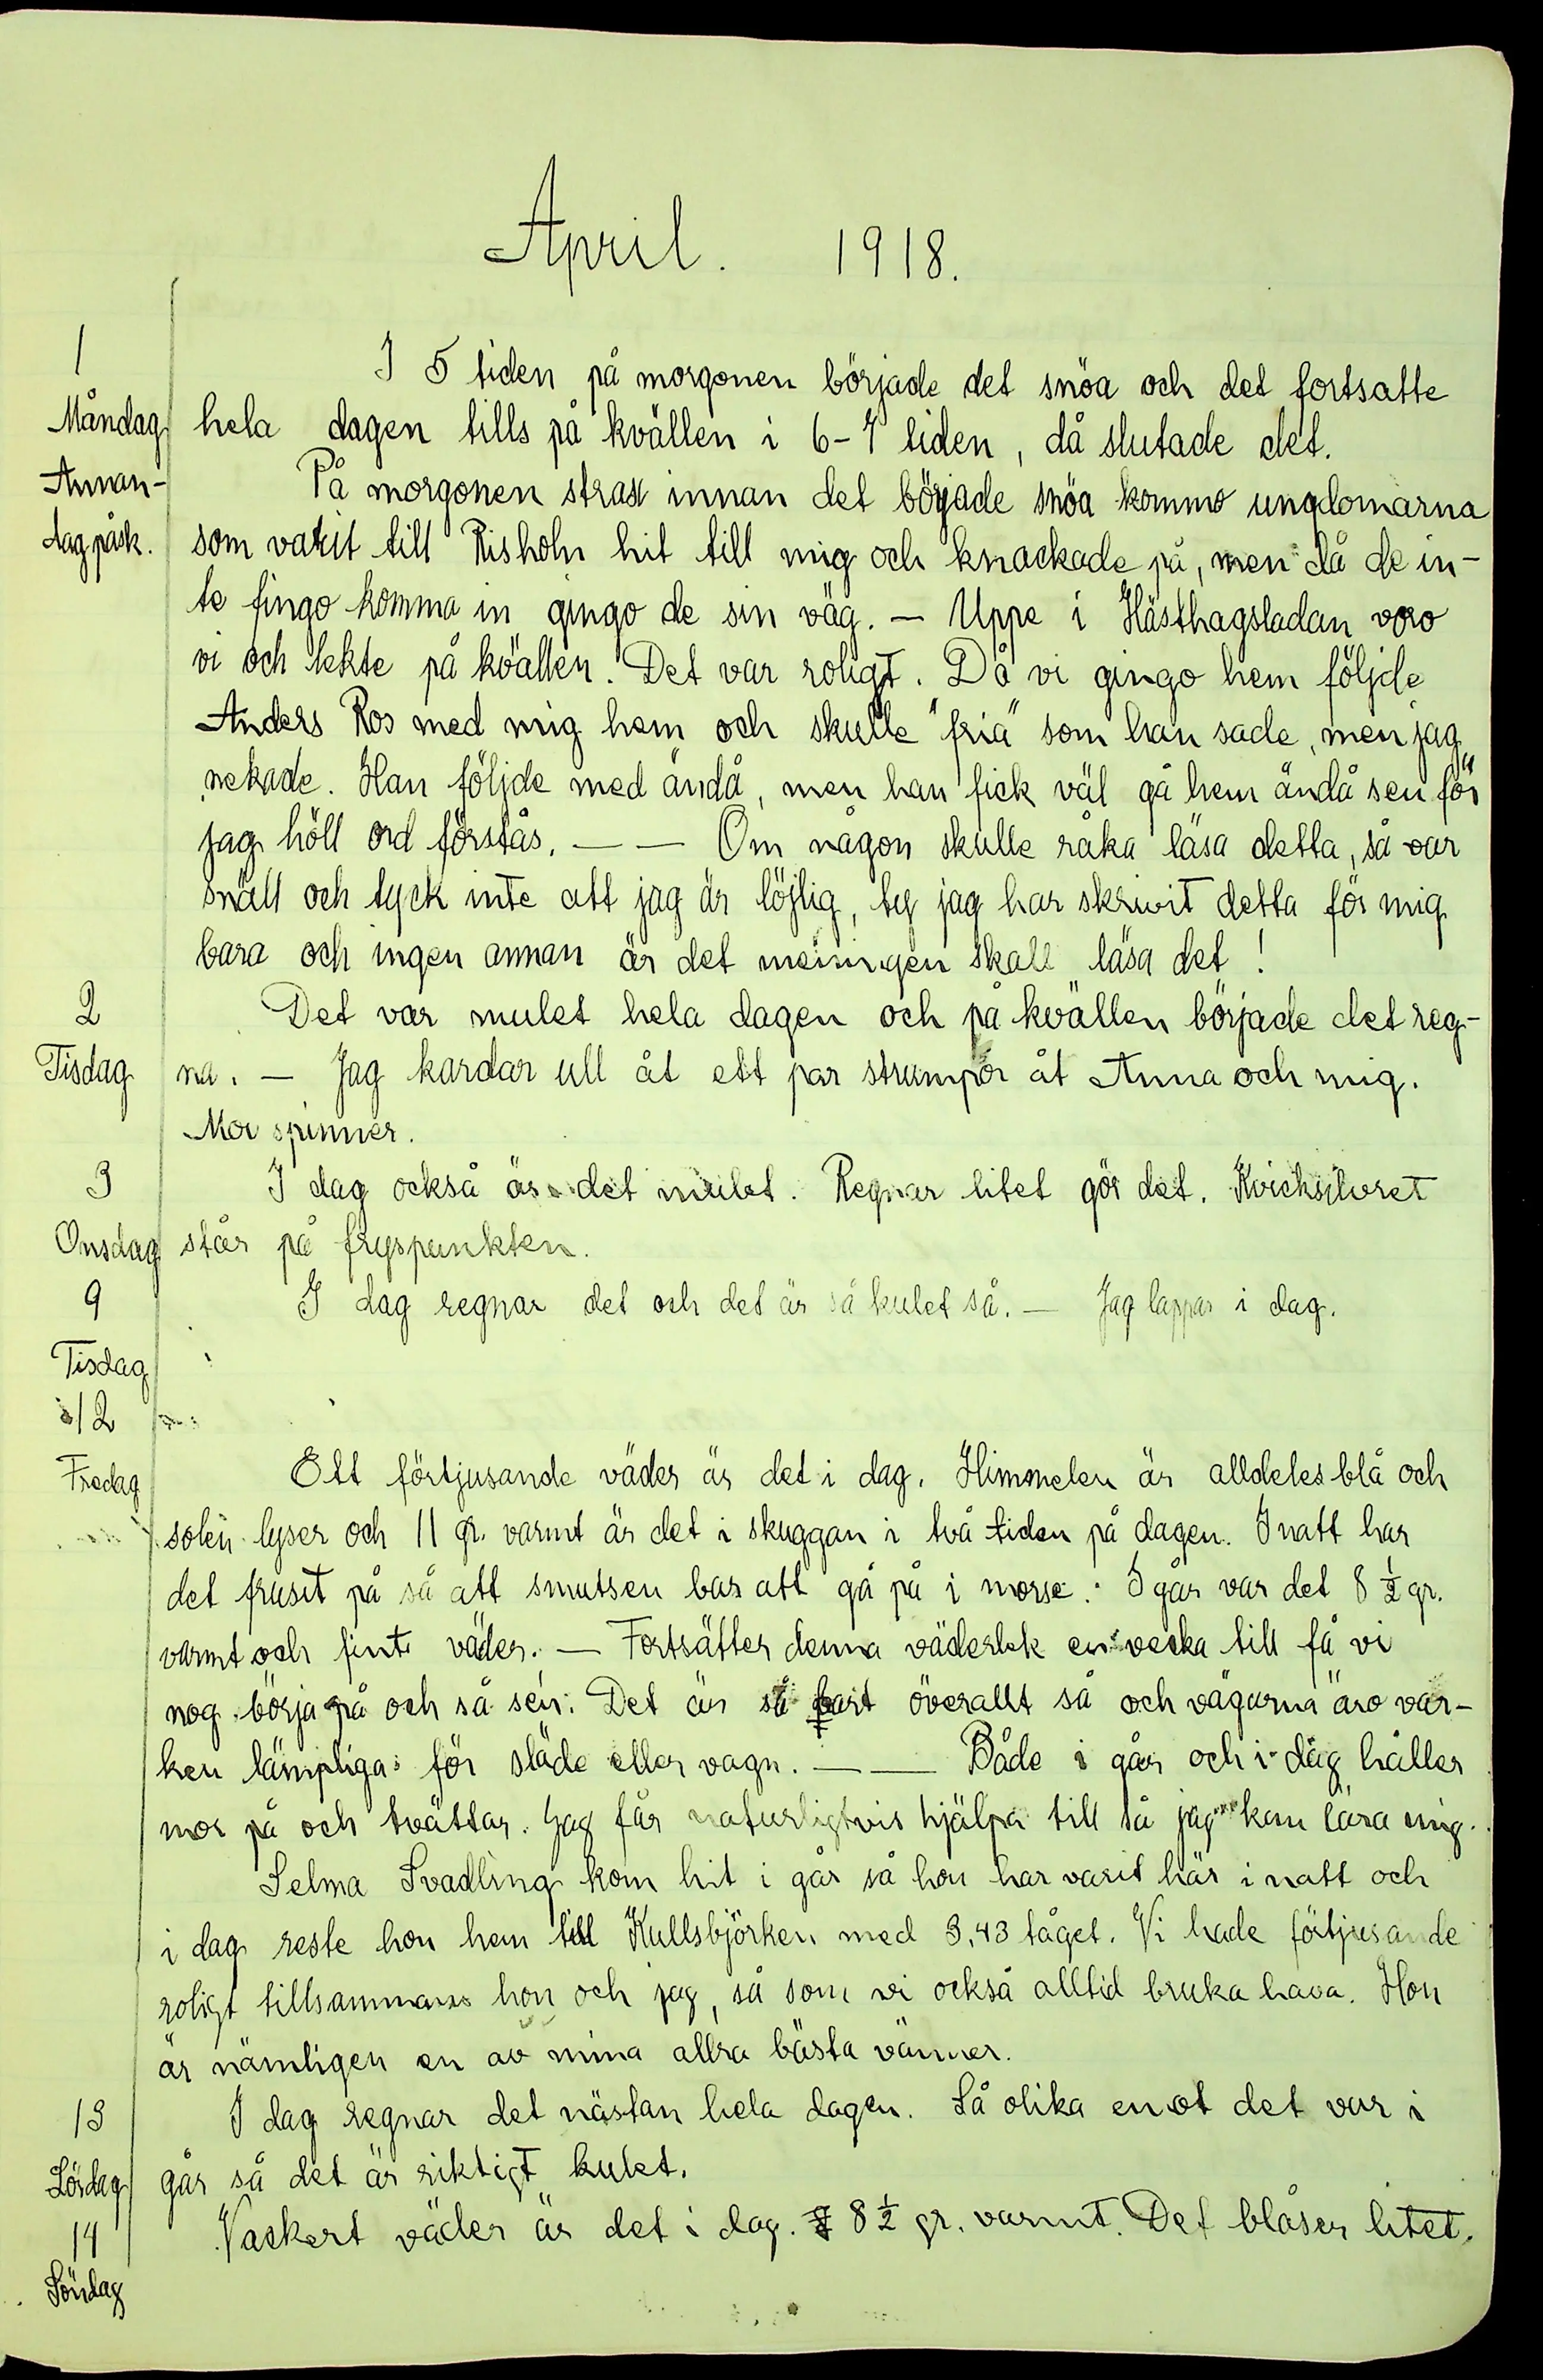 April. 1918.
1
I 5 tiden på morgonen började det snöa och det fortsatte
Måndag hela dagen tills på kvällen i 6-7 tiden, då slutade det.
Annan- På morgonen strax innan det började snöa kommo ungdomarna
dag påsk. som varit till Risholn hit till mig och knackade på, men då de in-
te fingo komma in gingo de sin väg. — Uppe i Hästhagsladan voro
vi och lekte på kvällen. Det var roligt. Då vi gingo hem följde
Anders Ros med mig hem och skulle "fria" som han sade, men jag
nekade. Han följde med ändå, men han fick väl gå hem ändå sen för
jag höll ord förstås. — — Om någon skulle råka läsa detta, så var
snäll och tyck inte att jag är löjlig, ty jag har skrivit detta för mig
bara och ingen annan är det meningen skall läsa det!
2 Det var mulet hela dagen och på kvällen började det reg-
Tisdag na. — Jag kardar ull åt ett par strumpor åt Anna och mig.
Mor spinner.
3 I dag också är det mulet. Regnar litet gör det. Kvicksilvret
Onsdag står på fryspunkten.
9 I dag regnar det och det är så kulet så. — Jag lappar i dag.
Tisdag
12
Fredag Ett förtjusande väder är det i dag. Himmelen är alldeles blå och
solen lyser och 11 gr. varmt är det i skuggan i två tiden på dagen. I natt har
det frusit på så att smutsen bar att gå på i morse. I går var det 8 ½ gr.
varmt och fint väder. — Fortsätter denna väderlek en vecka till få vi
nog börja på och så sen. Det är så bart överallt så och vägarna äro var-
ken lämpliga för släde eller vagn. — — Både i går och i dag håller
mor på och tvättar. Jag får naturligtvis hjälpa till så jag kan lära mig.
Selma Svadling kom hit i går så hon har varit här i natt och
i dag reste hon hem till Kullsbjörken med 3,43 tåget. Vi hade förtjusande
roligt tillsammans hon och jag, så som vi också alltid bruka hava. Hon
är nämligen en av mina allra bästa vänner.
13 I dag regnar det nästan hela dagen. Så olika emot det var i
Lördag går så det är riktigt kulet.
14 Vackert väder är det i dag. 8 ½ gr. varmt. Det blåser litet.
Söndag